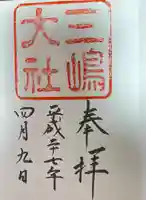 奉拝
三嶋
大社
平成二十七年
四月九日